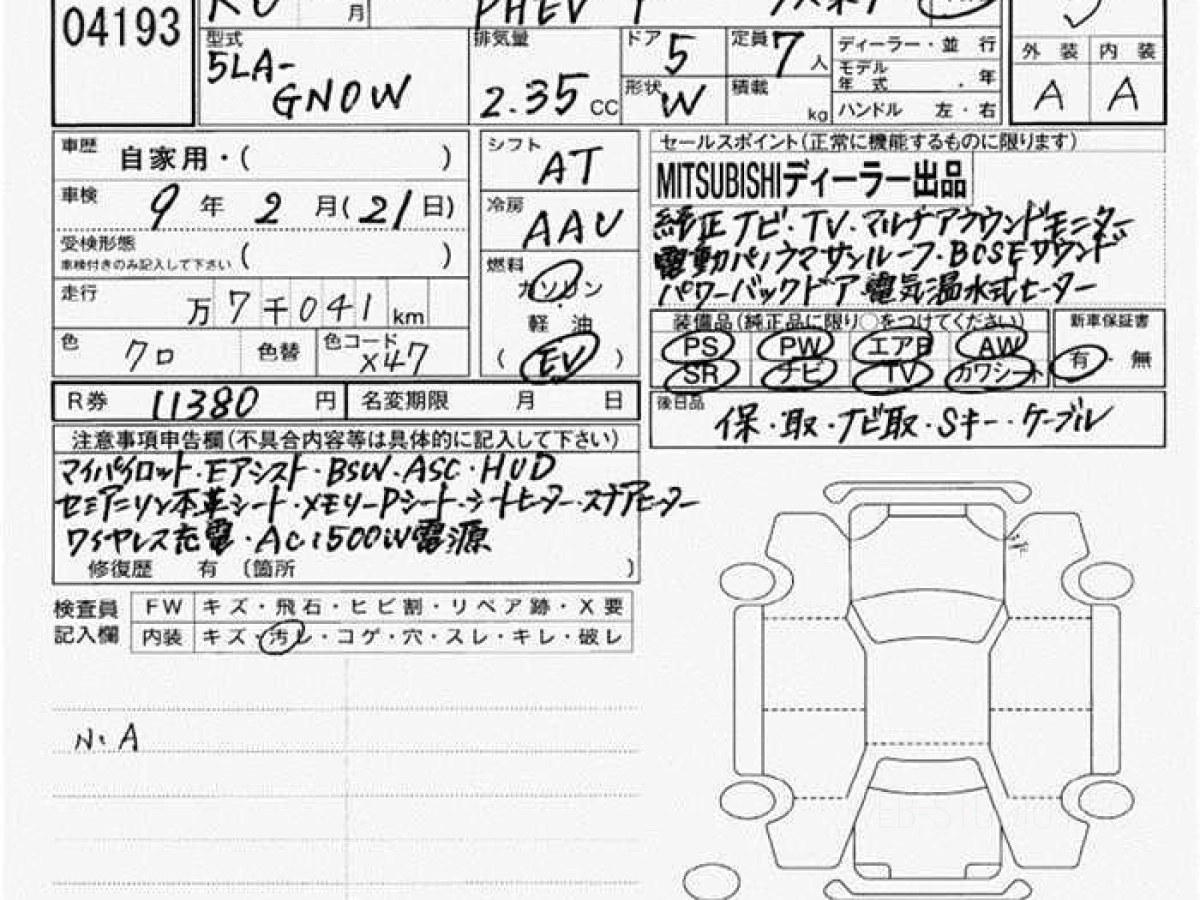 04193
R6 月
PHEV P
型式
5LA-
GN0W
排気量
2.35 CC
ドア 5
定員 7 人
形状 W
積載 kg
ディーラー・並 行
モデル
年 式 . 年
ハンドル 左・右
外 装 内 装
A A
車歴 自家用・( )
車検 9 年 2 月(21日)
受検形態
車検付きのみ記入して下さい ( )
走行 万 7 千 041 km
色 クロ 色替 色コード X47
シフト AT
冷房 AAC
燃料
ガソリン
・
軽 油
( EV )
セールスポイント(正常に機能するものに限ります)
MITSUBISHIディーラー出品
純正ナビ・TV・マルチアラウンドモニター
電動パノラマサンルーフ・BOSEサウンド
パワーバックドア・電気温水式ヒーター
装備品(純正品に限り○をつけてください)
PS PW エアB AW
SR ナビ TV カワシート
新車保証書
有 ・ 無
R券 11380 円 名変期限 月 日
後日品
保・取・ナビ取・Sキー・ケーブル
注意事項申告欄(不具合内容等は具体的に記入して下さい)
マイパイロット・Eアシスト・BSW・ASC・HUD
セミアニリン本革シート・メモリーPシート・シートヒーター・ステアヒーター
ワイヤレス充電・AC1500W電源
修復歴 有 〔箇所 〕
検査員
記入欄
FW キズ・飛石・ヒビ割・リペア跡・X要
内装 キズ・汚レ・コゲ・穴・スレ・キレ・破レ
N.A